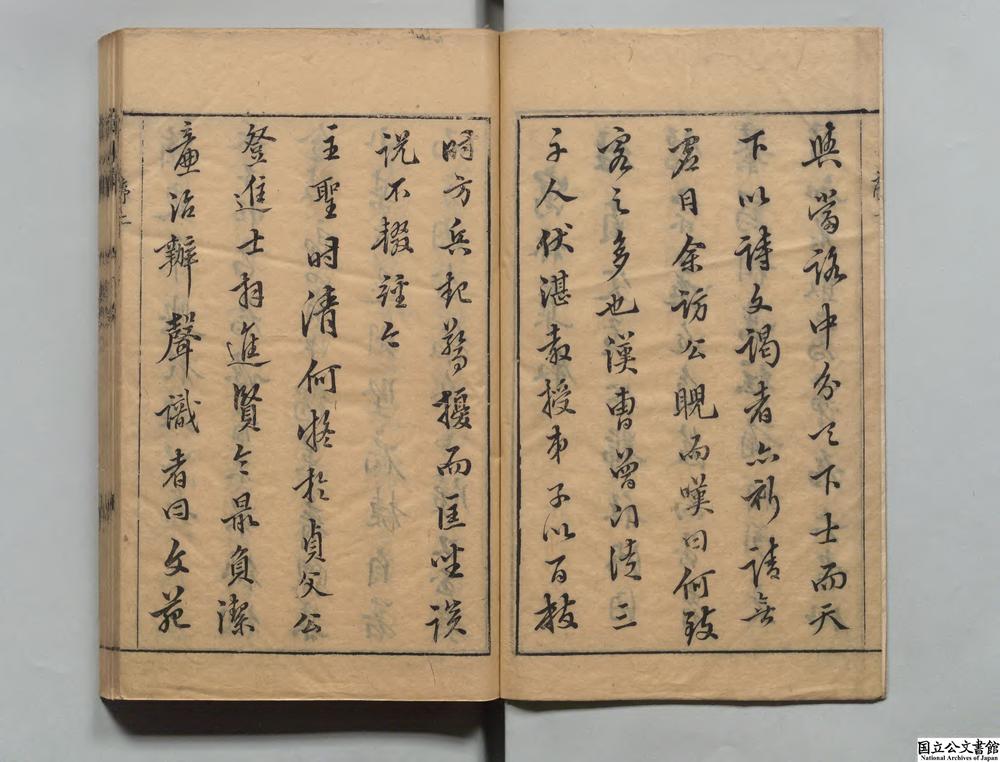 與當路中分天下士而天
下以詩文謁者亦祈請無
虛日余訪公睨而嘆曰何致
客之多也漢曹曾門徒三
千人伏湛教授弟子以百數
時方兵起驚擾而匡坐談
說不輟經亡
主聖時清何憖於貞父公
登進士拜進賢令最負潔
廉治辦聲識者曰文苑
国立公文書館
National Archives of Japan